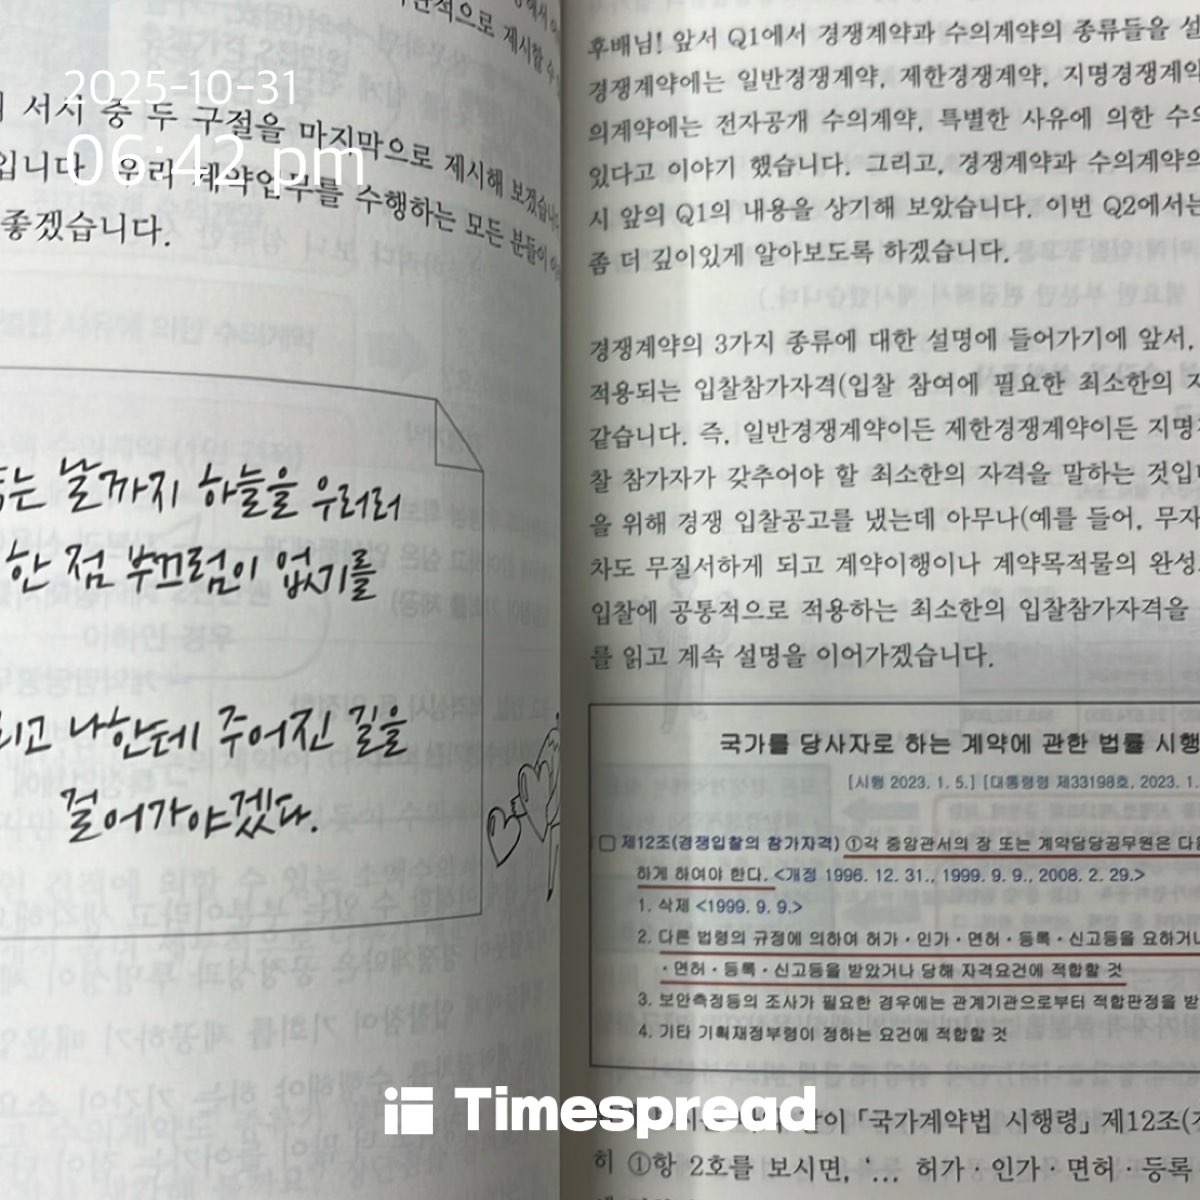 2025-10-31
06:42 pm
서시 중 두 구절을 마지막으로 제시해 보겠습니다.
입니다. 우리 계약업무를 수행하는 모든 분들이
좋겠습니다.
는 날까지 하늘을 우러러
한 점 부끄럼이 없기를
나한테 주어진 길을
걸어가야겠다.
후배님! 앞서 Q1에서 경쟁계약과 수의계약의 종류들을
경쟁계약에는 일반경쟁계약, 제한경쟁계약, 지명경쟁계약
의계약에는 전자공개 수의계약, 특별한 사유에 의한
있다고 이야기 했습니다. 그리고, 경쟁계약과 수의계약의
시 앞의 Q1의 내용을 상기해 보았습니다. 이번 Q2에서는
좀 더 깊이있게 알아보도록 하겠습니다.
경쟁계약의 3가지 종류에 대한 설명에 들어가기에 앞서,
적용되는 입찰참가자격(입찰 참여에 필요한 최소한의
같습니다. 즉, 일반경쟁계약이든 제한경쟁계약이든
찰 참가자가 갖추어야 할 최소한의 자격을 말하는
을 위해 경쟁 입찰공고를 냈는데 아무나(예를 들어,
차도 무질서하게 되고 계약이행이나 계약목적물의
입찰에 공통적으로 적용하는 최소한의 입찰참가자격을
를 읽고 계속 설명을 이어가겠습니다.
국가를 당사자로 하는 계약에 관한 법률
[시행 2023. 1. 5.] [대통령령 제33198호, 2023. 1.
□ 제12조(경쟁입찰의 참가자격) ①각 중앙관서의 장 또는 계약담당공무원은
하게 하여야 한다. <개정 1996. 12. 31., 1999. 9. 9., 2008. 2. 29.>
1. 삭제 <1999. 9. 9.>
2. 다른 법령의 규정에 의하여 허가·인가·면허·등록·신고등을 요하거나
·면허·등록·신고등을 받았거나 당해 자격요건에 적합할 것
3. 보안측정등의 조사가 필요한 경우에는 관계기관으로부터 적합판정을
4. 기타 기획재정부령이 정하는 요건에 적합할 것
같이 「국가계약법 시행령」 제12조
히 ①항 2호를 보시면, '... 허가·인가·면허·등록
Timespread